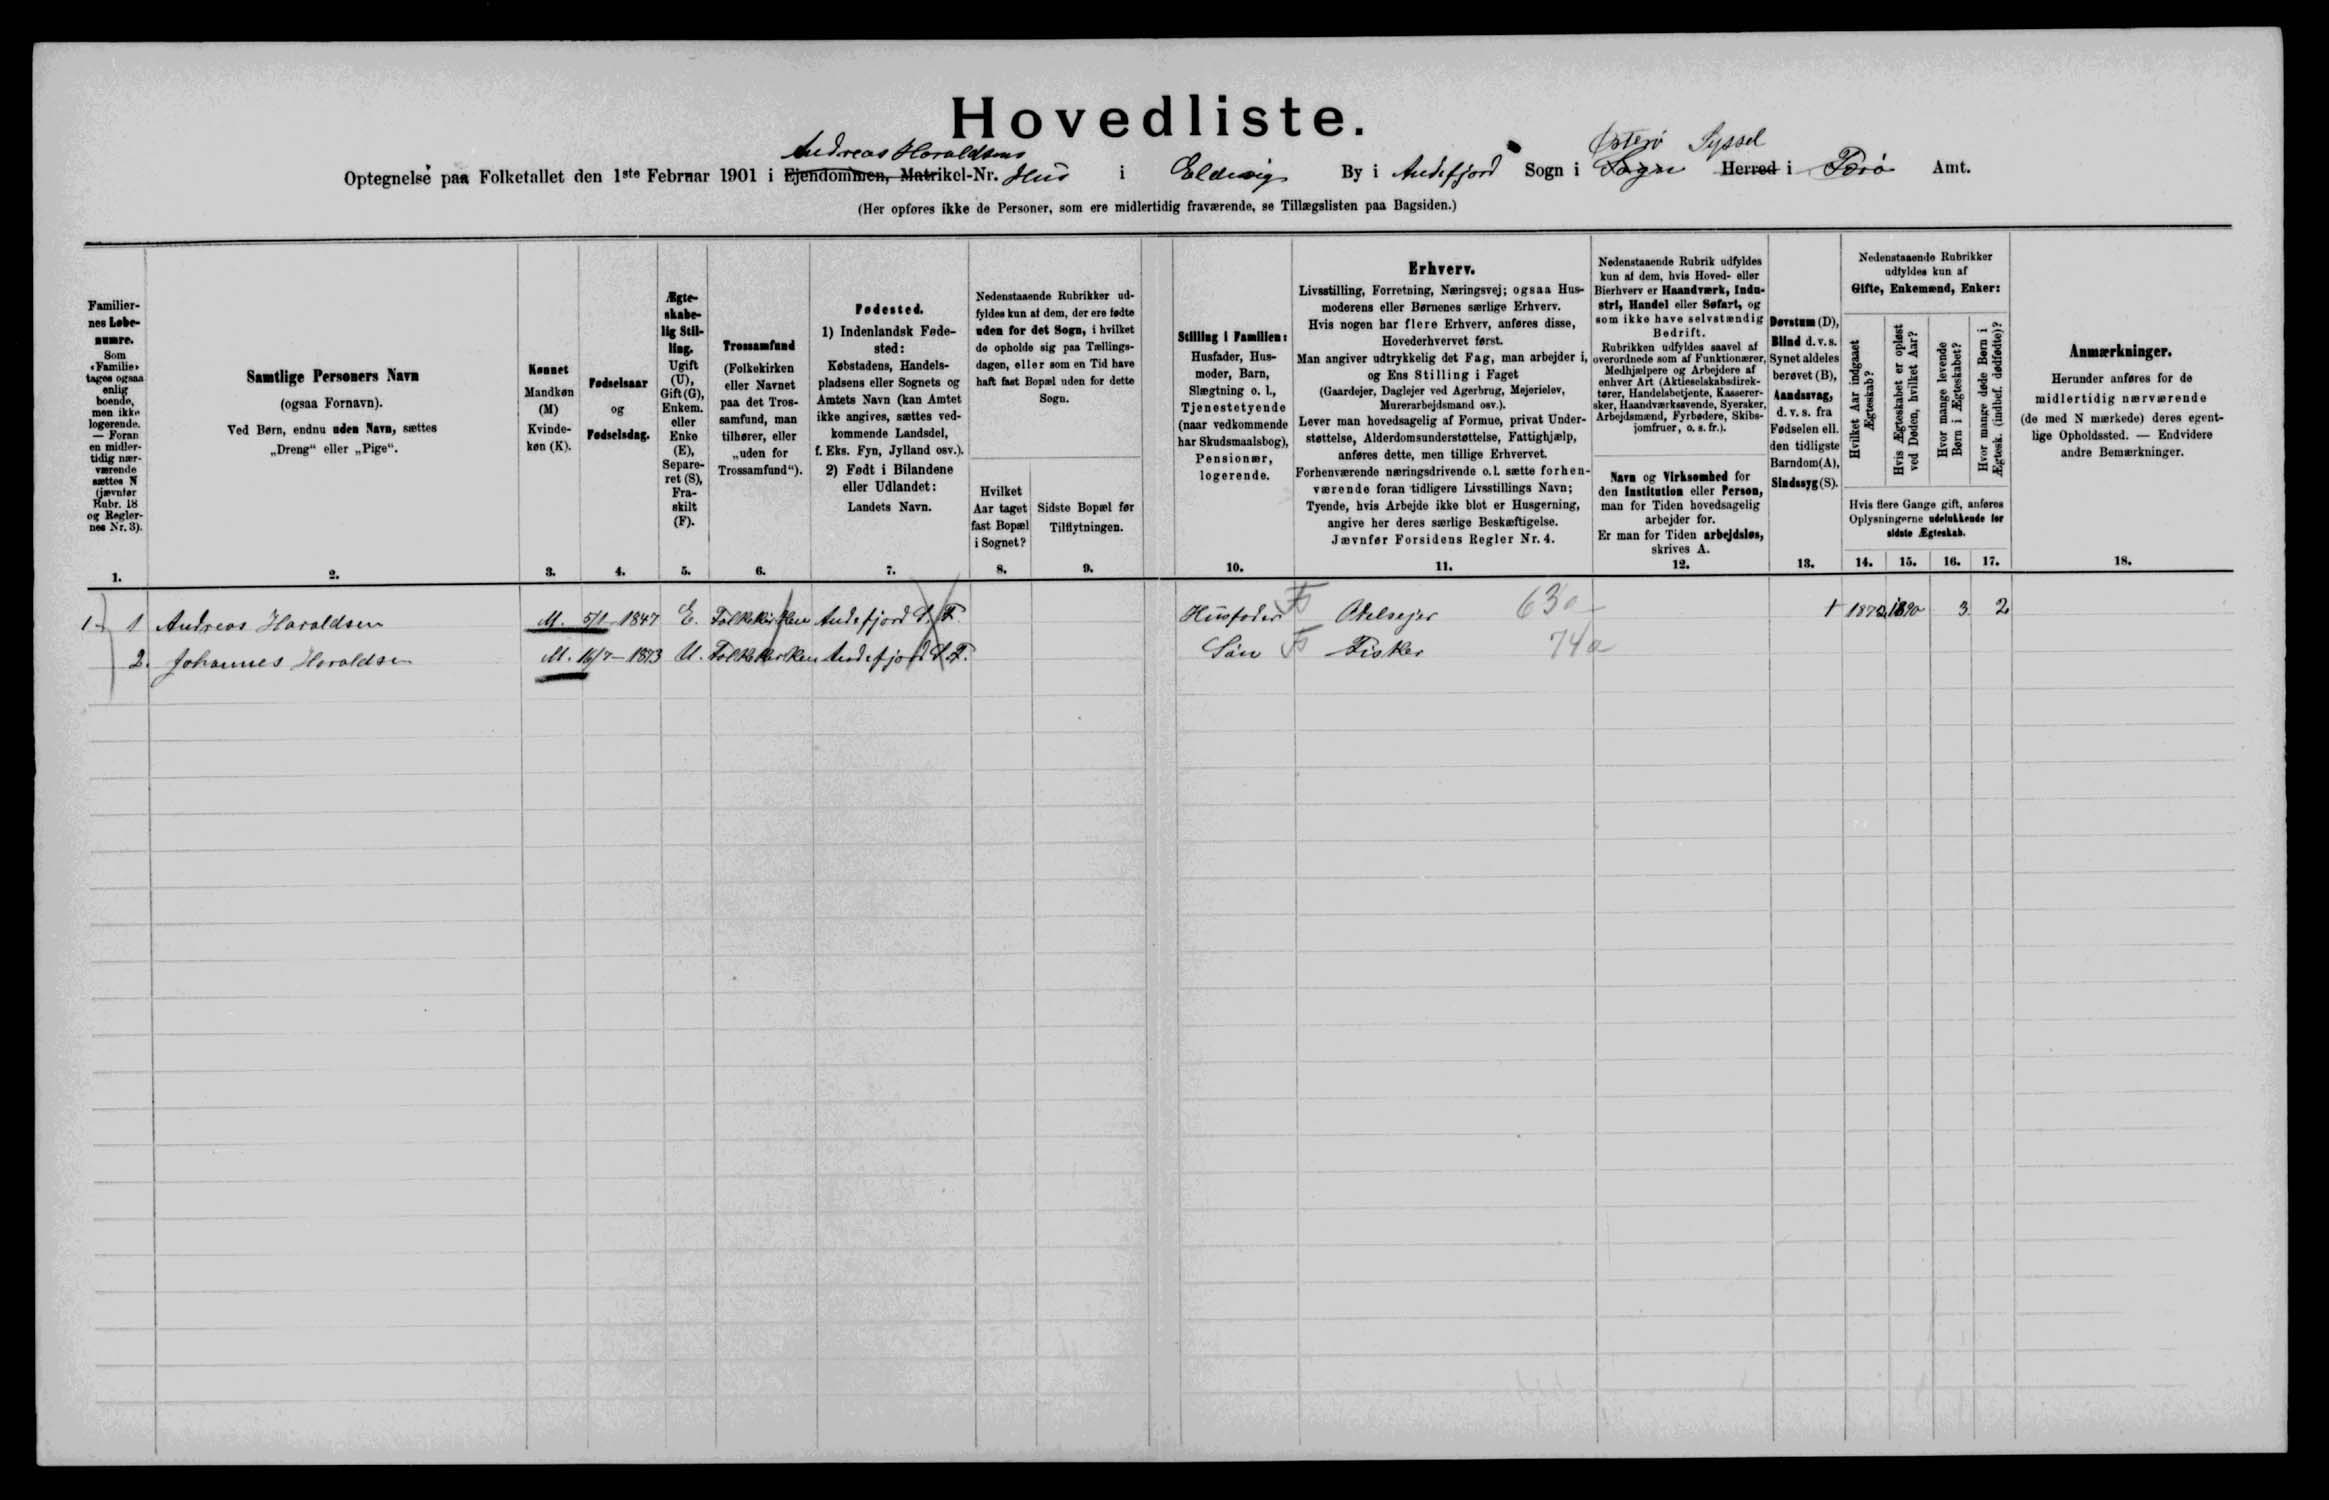 Hovedliste.
Andreas Haraldsens Østerø Syssel
Optegnelse paa Folketallet den 1ste Februar 1901 i Ejendommen, Matrikel-Nr. Hus i Eldevig By i Andefjord Sogn i Sogn Herred i Færø Amt.
(Her opføres ikke de Personer, som ere midlertidig fraværende, se Tillægslisten paa Bagsiden.)
Familier-
nes Løbe-
numre.
Som
«Familie»
tages ogsaa
enlig
boende,
men ikke
logerende.
— Foran
en midler-
tidig nær-
værende
sættes N
(jævnfør
Rubr. 18
og Regler-
nes Nr. 3).
1.
Samtlige Personers Navn
(ogsaa Fornavn).
Ved Børn, endnu uden Navn, sættes
„Dreng“ eller „Pige“.
2.
Kønnet
Mandkøn
(M)
Kvinde-
køn (K).
3.
Fødselsaar
og
Fødselsdag.
4.
Ægte-
skabe-
lig Stil-
ling.
Ugift
(U),
Gift (G),
Enkem.
eller
Enke
(E),
Separe-
ret (S),
Fra-
skilt
(F).
5.
Trossamfund
(Folkekirken
eller Navnet
paa det Tros-
samfund, man
tilhører, eller
„uden for
Trossamfund“).
6.
Fødested.
1) Indenlandsk Føde-
sted:
Købstadens, Handels-
pladsens eller Sognets og
Amtets Navn (kan Amtet
ikke angives, sættes ved-
kommende Landsdel,
f. Eks. Fyn, Jylland osv.).
2) Født i Bilandene
eller Udlandet:
Landets Navn.
7.
Nedenstaaende Rubrikker ud-
fyldes kun af dem, der ere fødte
uden for det Sogn, i hvilket
de opholde sig paa Tællings-
dagen, eller som en Tid have
haft fast Bopæl uden for dette
Sogn.
Hvilket
Aar taget
fast Bopæl
i Sognet?
8.
Sidste Bopæl før
Tilflytningen.
9.
Stilling i Familien:
Husfader, Hus-
moder, Barn,
Slægtning o. l.,
Tjenestetyende
(naar vedkommende
har Skudsmaalsbog),
Pensionær,
logerende.
10.
Erhverv.
Livsstilling, Forretning, Næringsvej; ogsaa Hus-
moderens eller Børnenes særlige Erhverv.
Hvis nogen har flere Erhverv, anføres disse,
Hovederhvervet først.
Man angiver udtrykkelig det Fag, man arbejder i,
og Ens Stilling i Faget
(Gaardejer, Daglejer ved Agerbrug, Mejerielev,
Murerarbejdsmand osv.).
Lever man hovedsagelig af Formue, privat Under-
støttelse, Alderdomsunderstøttelse, Fattighjælp,
anføres dette, men tillige Erhvervet.
Forhenværende næringsdrivende o. l. sætte forhen-
værende foran tidligere Livsstillings Navn;
Tyende, hvis Arbejde ikke blot er Husgerning,
angive her deres særlige Beskæftigelse.
Jævnfør Forsidens Regler Nr. 4.
11.
Nedenstaaende Rubrik udfyldes
kun af dem, hvis Hoved- eller
Bierhverv er Haandværk, Indu-
stri, Handel eller Søfart, og
som ikke have selvstændig
Bedrift.
Rubrikken udfyldes saavel af
overordnede som af Funktionærer,
Medhjælpere og Arbejdere af
enhver Art (Aktieselskabsdirek-
tører, Handelsbetjente, Kasserer-
sker, Haandværkssvende, Syersker,
Arbejdsmænd, Fyrbødere, Skibs-
jomfruer, o. s. fr.).
Navn og Virksomhed for
den Institution eller Person,
man for Tiden hovedsagelig
arbejder for.
Er man for Tiden arbejdsløs,
skrives A.
12.
Døvstum (D),
Blind d. v. s.
Synet aldeles
berøvet (B),
Aandssvag,
d. v. s. fra
Fødselen ell.
den tidligste
Barndom (A),
Sindssyg (S).
13.
Nedenstaaende Rubrikker
udfyldes kun af
Gifte, Enkemænd, Enker:
Hvilket Aar indgaaet
Ægteskab?
Hvis Ægteskabet er opløst
ved Døden, hvilket Aar?
Hvor mange levende
Børn i Ægteskabet?
Hvor mange døde Børn i
Ægtesk. (indbef. dødfødte)?
Hvis flere Gange gift, anføres
Oplysningerne udelukkende for
sidste Ægteskab.
14. 15. 16. 17.
Anmærkninger.
Herunder anføres for de
midlertidig nærværende
(de med N mærkede) deres egent-
lige Opholdssted. — Endvidere
andre Bemærkninger.
18.
1 1 Andreas Haraldsen M. 5/1 1847 E. Folkekirken Andefjord S. F. Husfader Odelsejer 63a 1872 1890 3 2
2. Johannes Haraldsen M. 16/7 - 1873 U. Folkekirken Andefjord S. F. Søn Fisker 74a